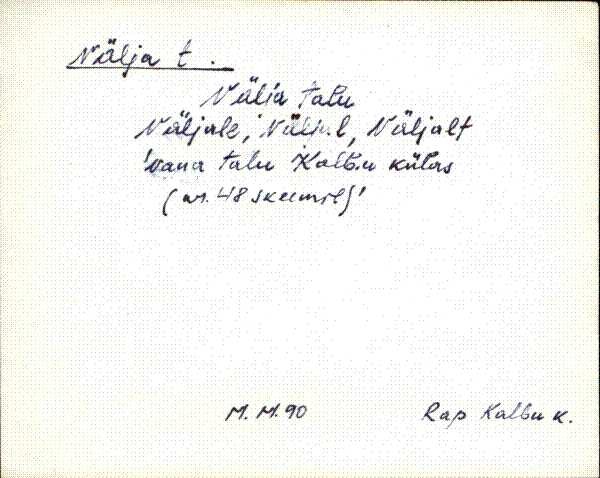 Nälja t.
Nälja talu
Näljale, Näljal, Näljalt
'vana talu Kalbu külas
(nr. 48 skeemil)'
M. M. 90 Rap Kalbu k.